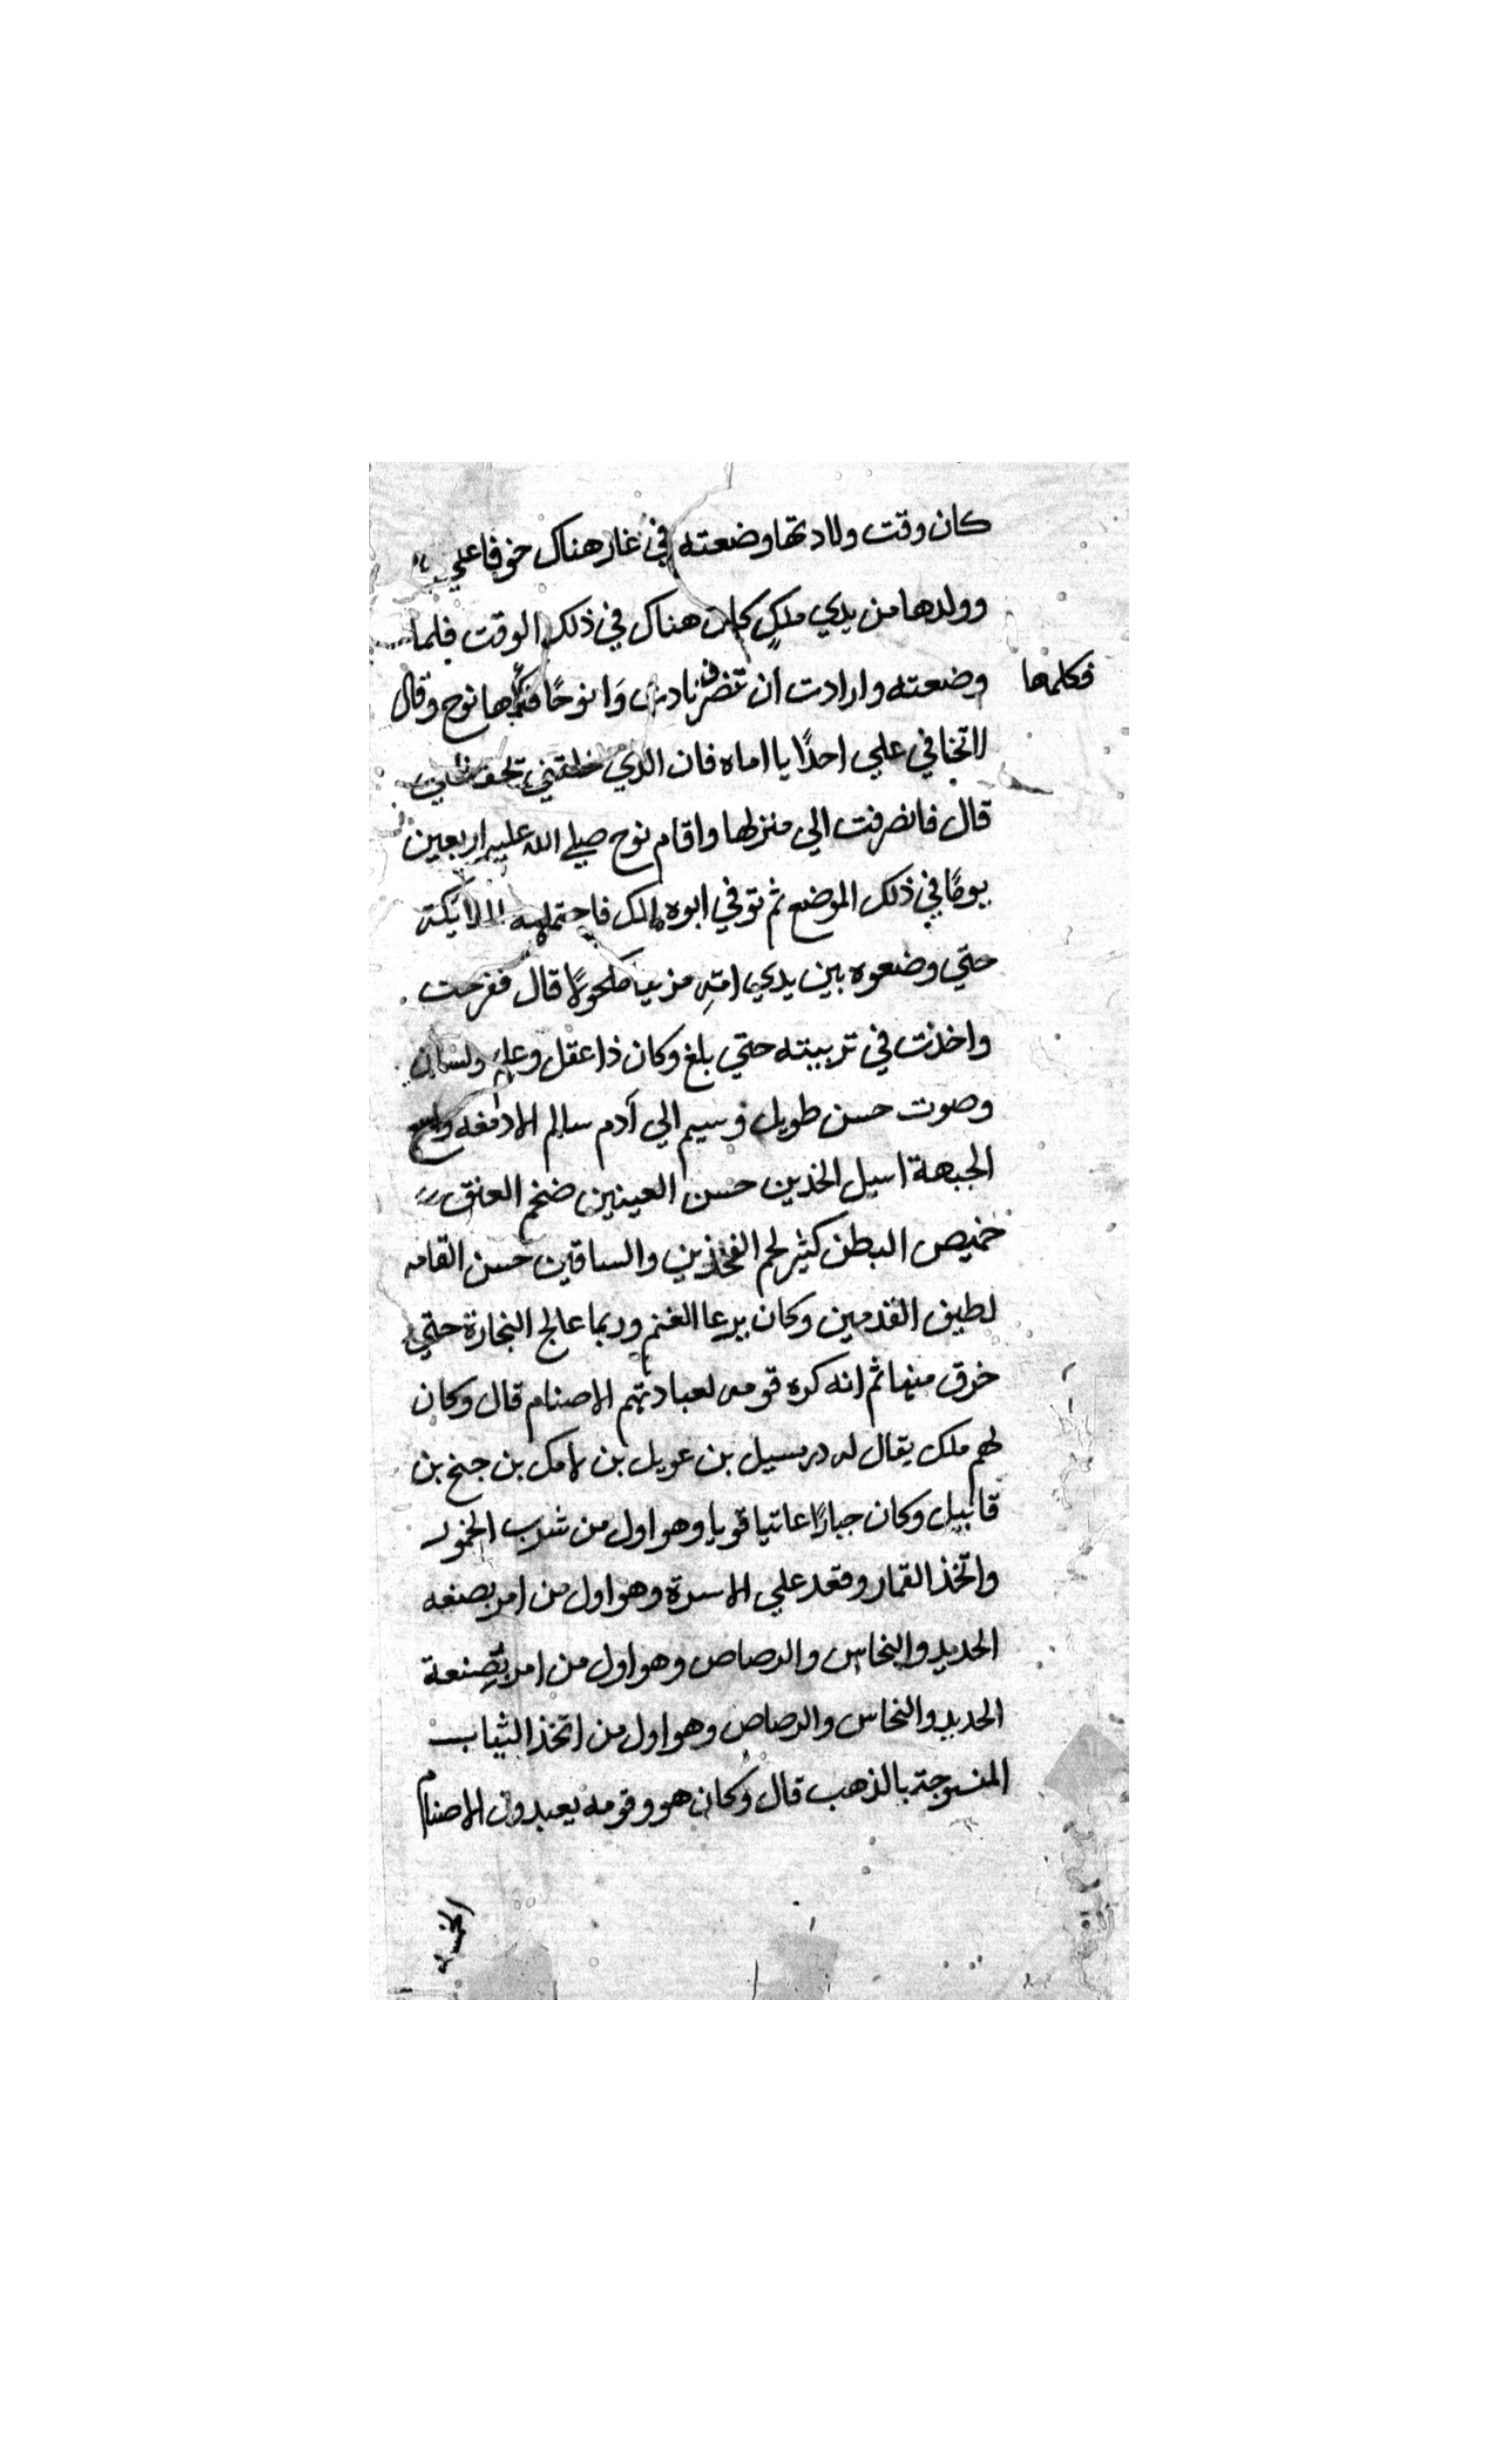 كان وقت ولادتها وضعته في غار هناك خوفا علي
وولدها من يدي ملكٍ كان هناك في ذلك الوقت فلما
وضعته وارادت ان تنصرف نادت وَا نوحًا فكلمها نوح وقال
فكلمها
لا تخافي علي احدًا يا اماه فان الذي خلقني يحفظني
قال فانصرفت الي منزلها واقام نوح صلي الله عليه اربعين
يومًا في ذلك الموضع ثم توفي ابوه لامك فاحتملته الملايكة
حتي وضعوه بين يدي امّه مزينا مكحولًا قال ففرحت
واخذت في تربيته حتي بلغ وكان ذا عقل وعلم ولسان
وصوت حسن طويل وسيم الي آدم سالم الادمغه واسع
الجبهة اسيل الخدين حسن العينين ضخم العنق
خميص البطن كثير لحم الفخذين والساقين حسن القامه
لطيف القدمين وكان يرعا الغنم وربما عالج النجارة حتي
خرق منها ثم انه كره قومه لعبادتهم الاصنام قال وكان
لهم ملك يقال له درمسيل بن عويل بن لامك بن جنح بن
قابيل وكان جبارًا عاتيا قويا وهو اول من شرب الخمور
واتّخذ القمار وقعد علي الاسرة وهو اول من امر بصنعه
الحديد والنحاس والرصاص وهو اول من امر بصنعة
الحديد والنحاس والرصاص وهو اول من اتخذ الثياب
المنسوجة بالذهب قال وكان هو وقومه يعبدون الاصنام